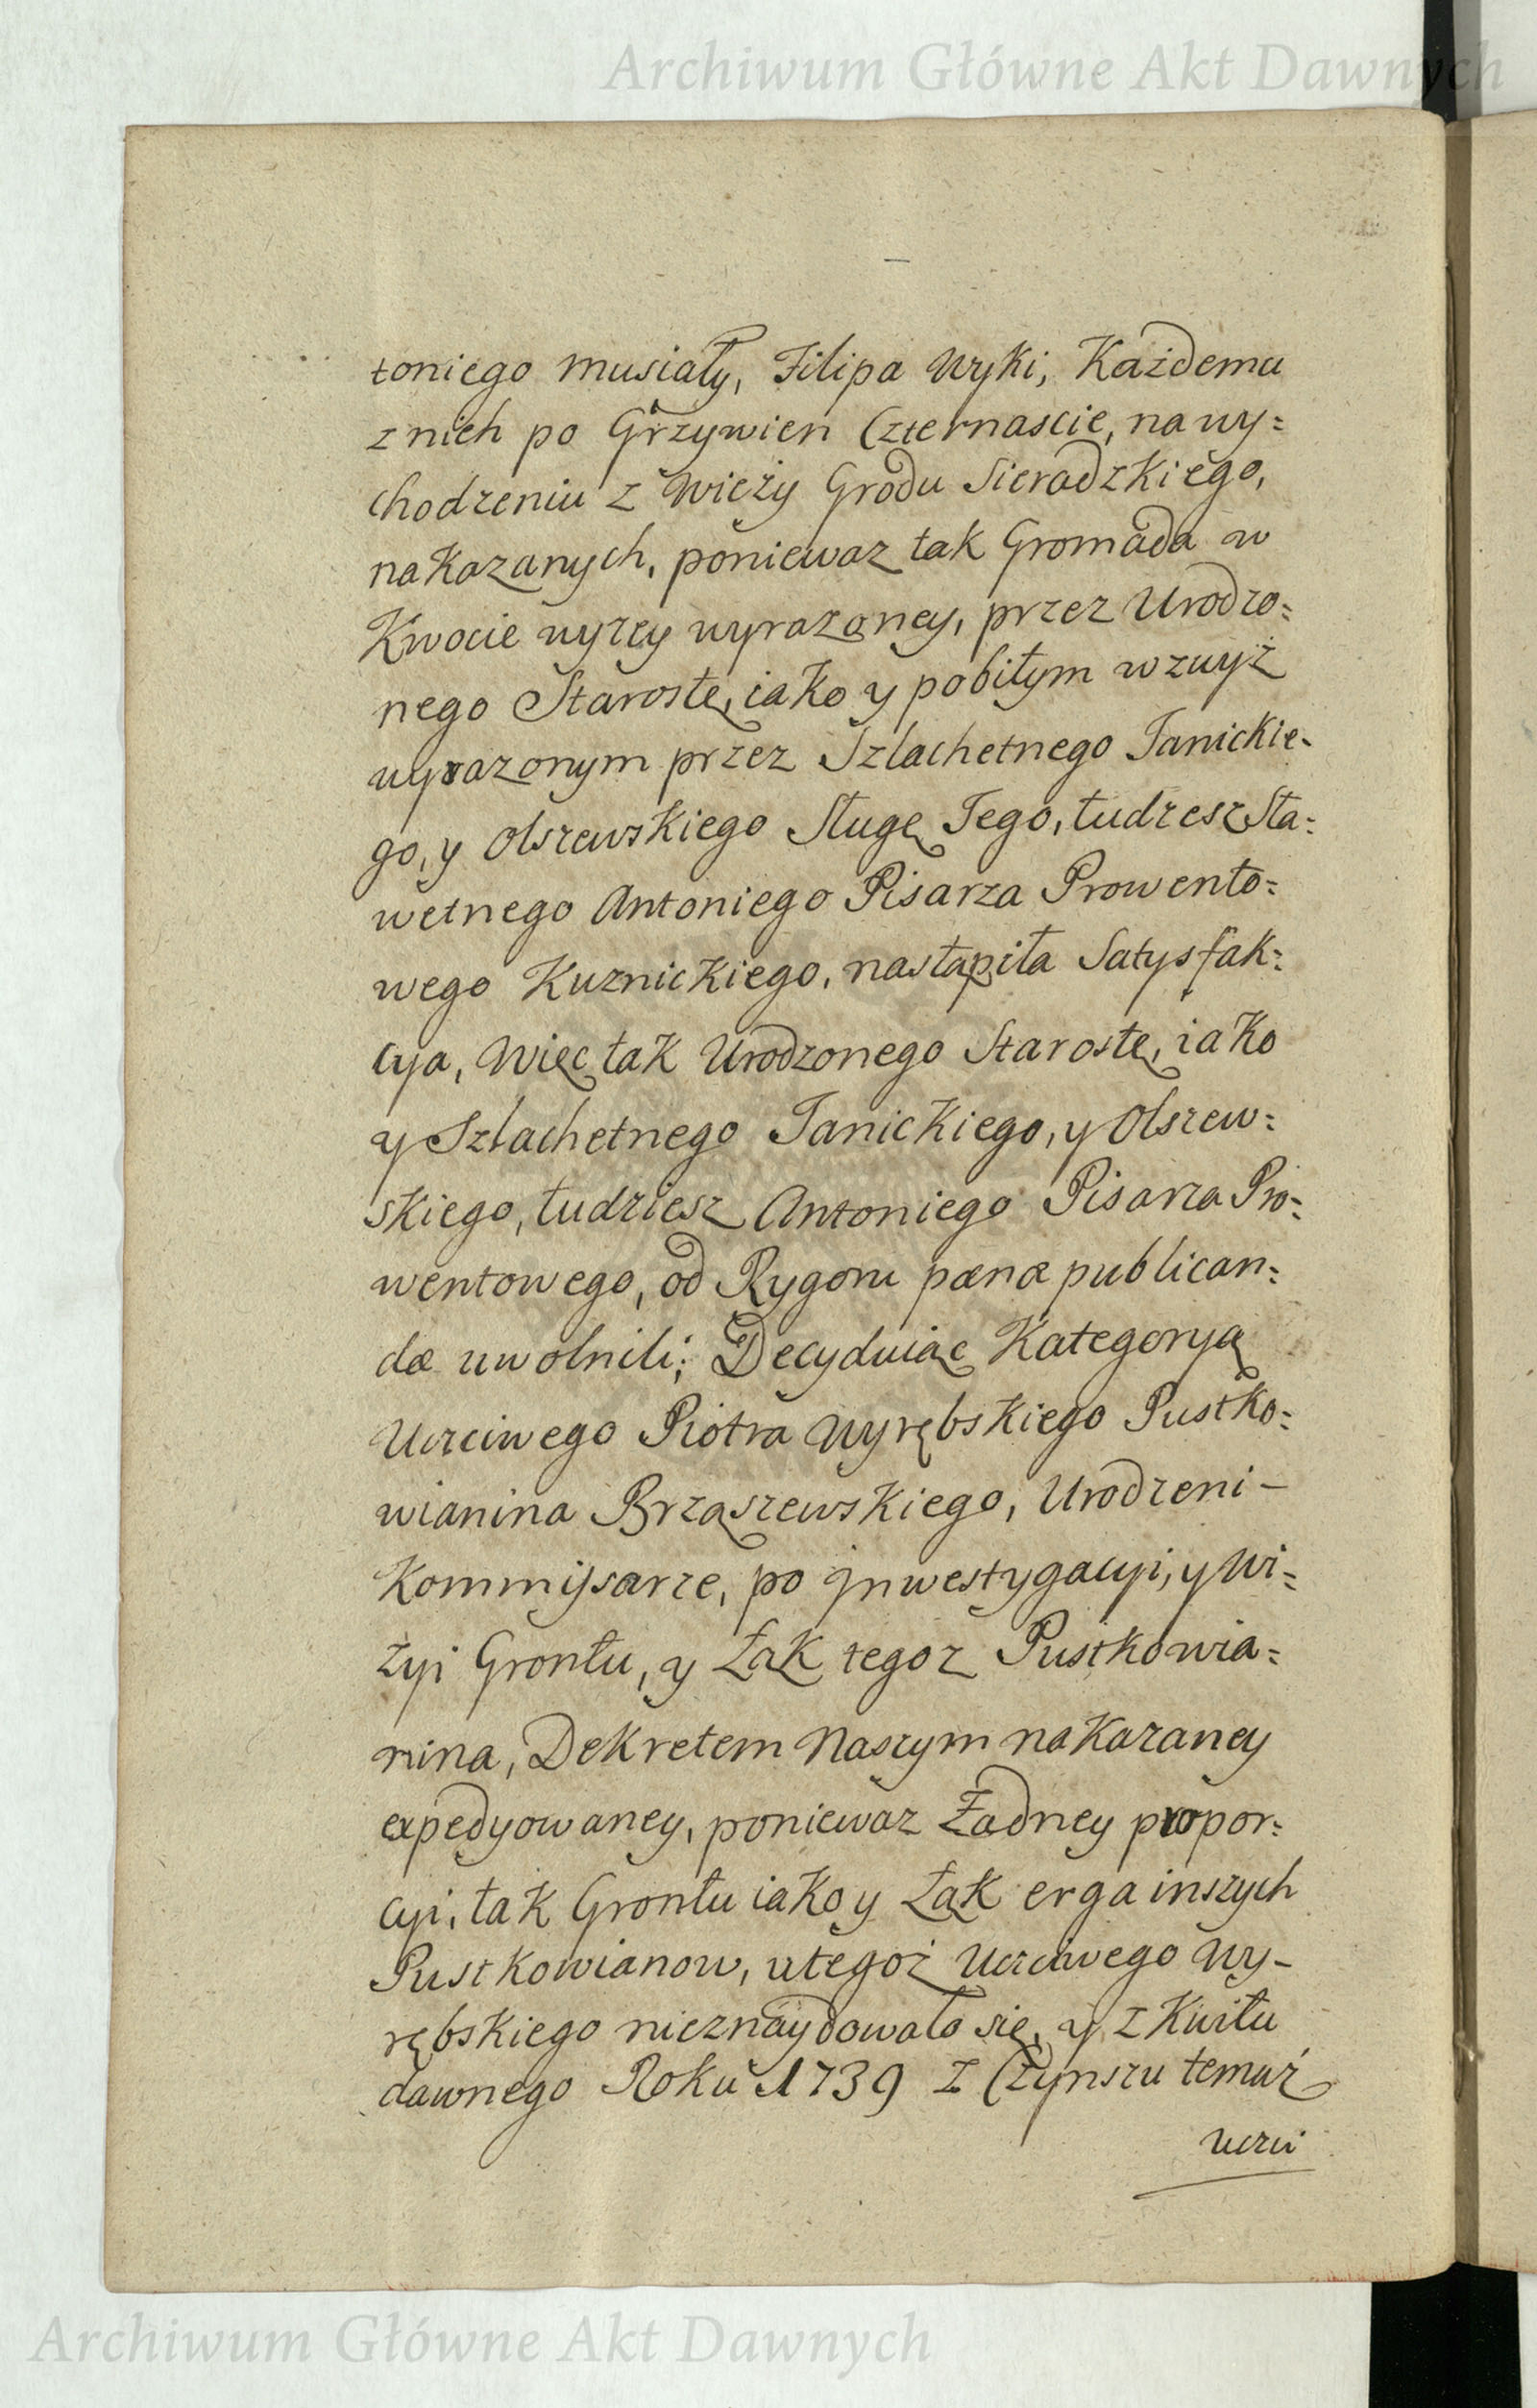 Archiwum Główne Akt Dawnych
toniego Musiały, Filipa Wyki, Każdemu
z nich po Grzywien Czternascie, na wy=
chodzeniu z Wieży Grodu Sieradzkiego,
nakazanych, poniewaz tak Gromada w
Kwocie wyzey wyrazoney, przez Urodzo=
nego Starostę, iako y pobiłym wzwyż
wyrazonym przez Szlachetnego Janickie-
go, y Olszewskiego Sługę Jego, tudzesz Sta=
wetnego Antoniego Pisarza Prowento=
wego Kuznickiego, nastąpiła Satysfak=
cya, Więc tak Urodzonego Starostę, iako
y Szlachetnego Janickiego, y Olszew=
skiego, tudziesz Antoniego Pisarza Pro=
wentowego, od Rygoru pænæ publican=
dæ uwolnili; Decyduiąc Kategoryą
Uczciwego Piotra Wyrębskiego Pustko=
wianina Brząszewskiego, Urodzeni -
Kommissarze, po Jnwestygacyi, y Wi=
zyi Grontu, y Łąk tegoz Pustkowia=
nina, Dekretem Naszym nakazaney
expedyowaney, poniewaz Żadney propor=
cyi, tak Grontu iako y Łąk erga inszych
Pustkowianow, u tegoż Uczciwego Wy-
rębskiego nieznaydowało się, y z Kwitu
dawnego Roku 1739 z Czynszu temuż
uczci
Archiwum Główne Akt Dawnych